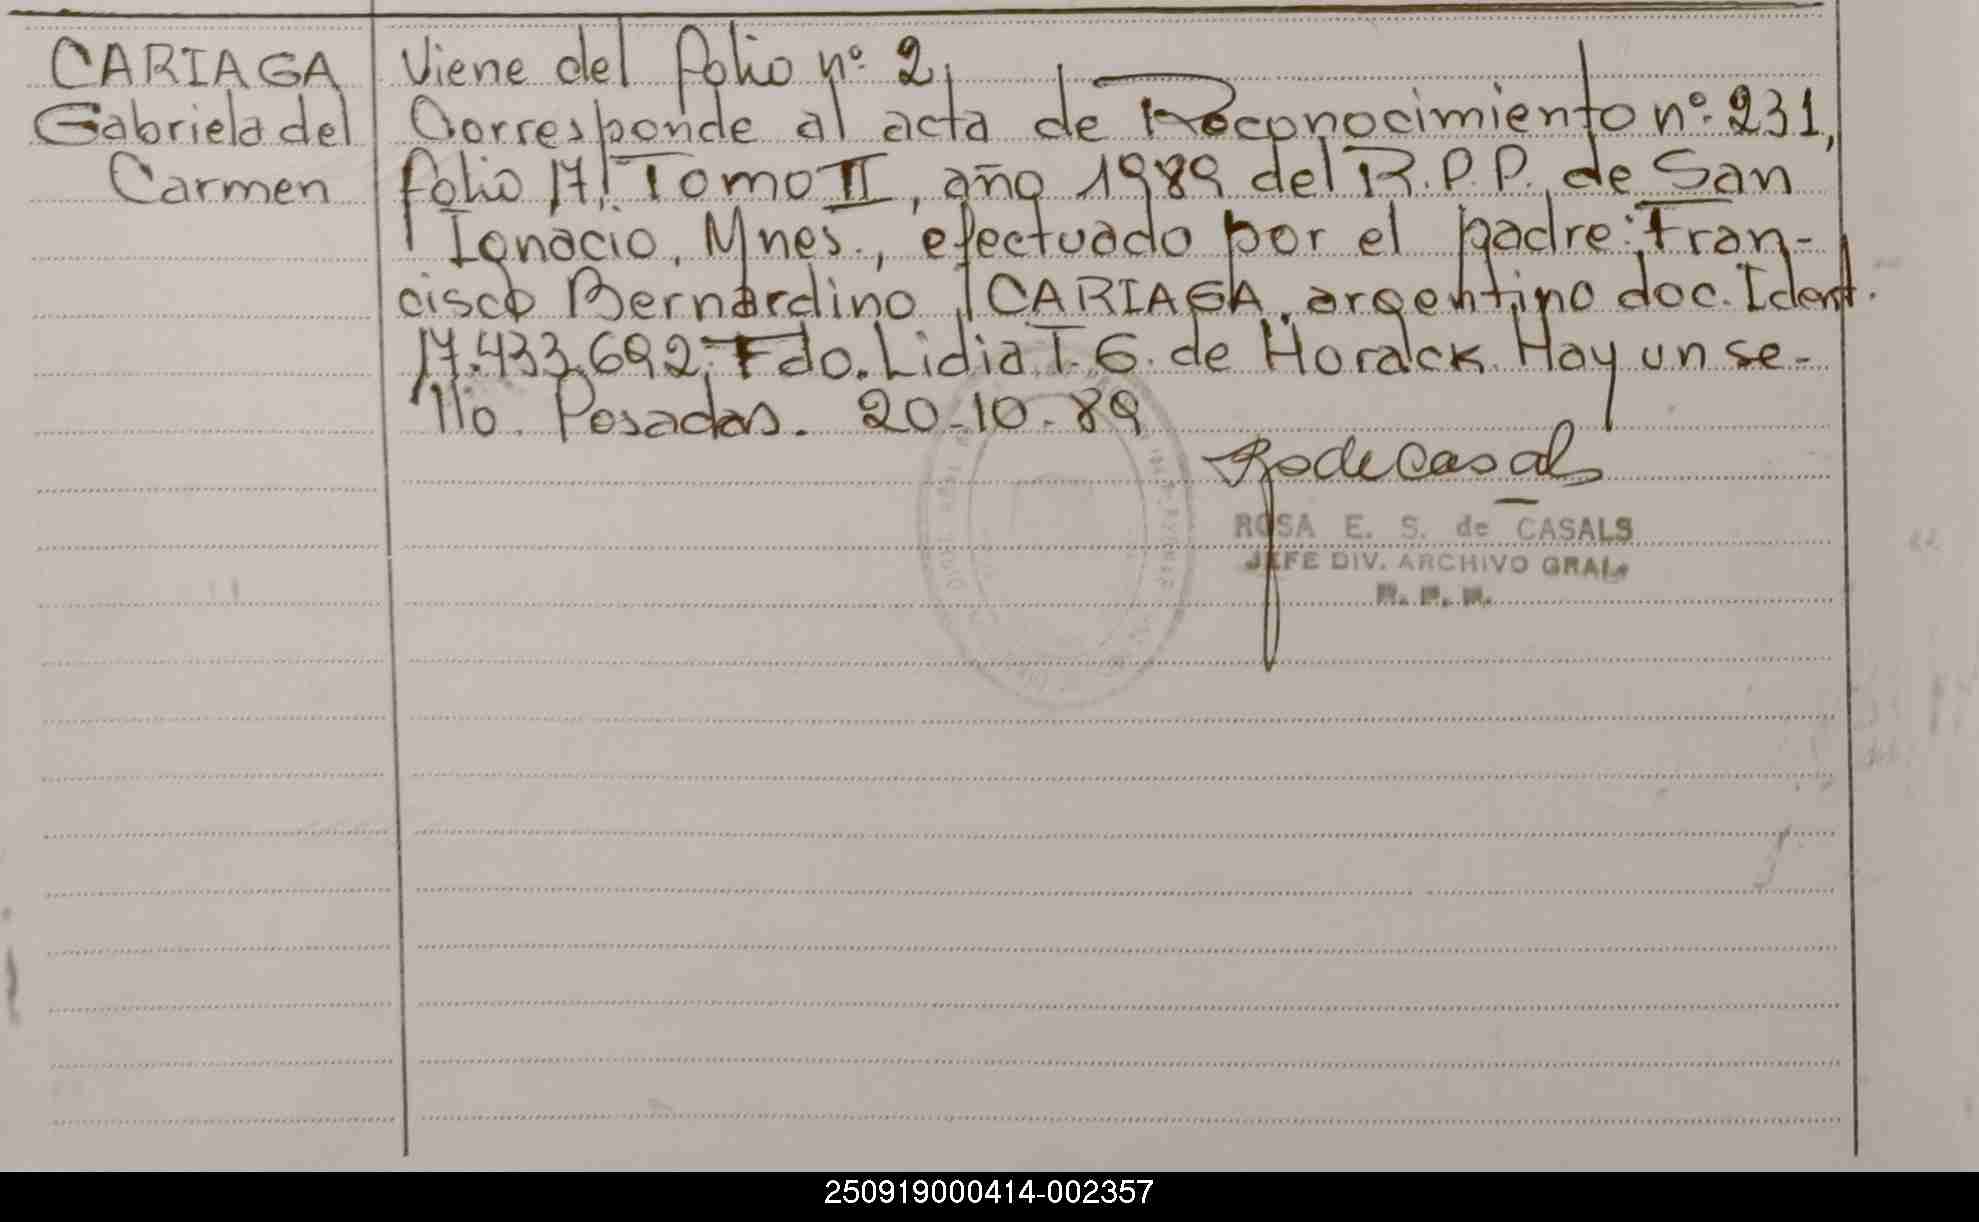 CARIAGA
Gabriela del
Carmen
Viene del folio nº 2.
Corresponde al acta de Reconocimiento nº 231,
folio 17, Tomo II, año 1989 del R.P.P. de San
Ignacio, Mnes., efectuado por el padre: Fran-
cisco Bernardino CARIAGA, argentino doc. Ident.
17.433.692. Fdo. Lidia T. G. de Horack. Hay un se-
llo. Posadas. 20-10-89
RosdeCasals
ROSA E. S. de CASALS
JEFE DIV. ARCHIVO GRAL.
250919000414-002357